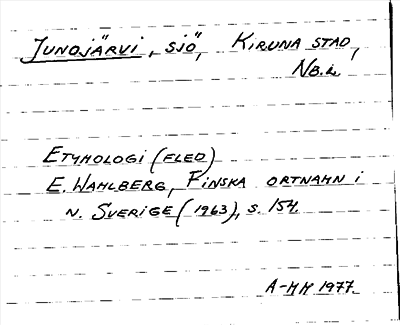 JUNOJÄRVI, SJÖ, KIRUNA STAD,
NB.L.
ETYMOLOGI (FLED)
E. WAHLBERG, FINSKA ORTNAMN I
N. SVERIGE (1963), S. 154.
A-MH 1977.